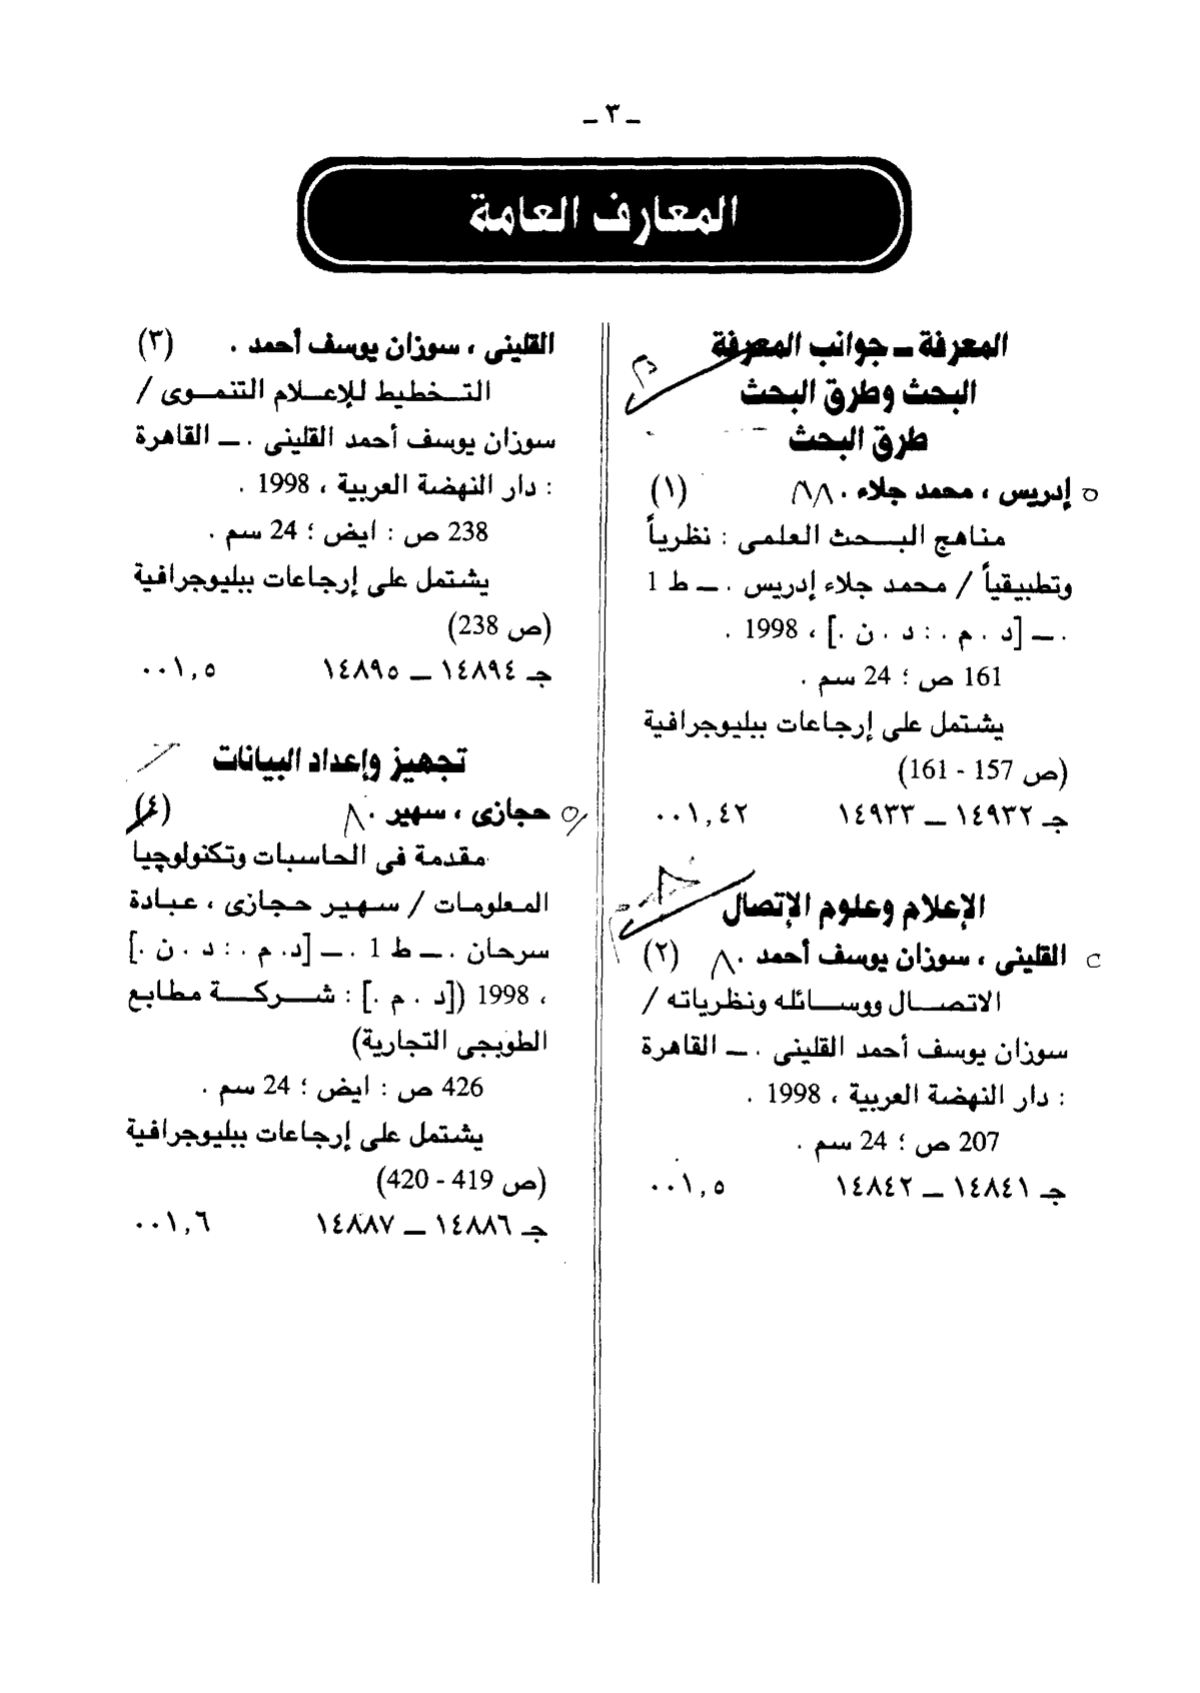 ـ ٣ ـ
المعارف العامة
المعرفة ـ جوانب المعرفة
البحث وطرق البحث
طرق البحث
إدريس ، محمد جلاء . (١)
مناهج البحث العلمى : نظرياً
وتطبيقياً / محمد جلاء إدريس . ـ ط 1
. ـ [د . م . : د . ن .] ، 1998 .
161 ص ؛ 24 سم .
يشتمل على إرجاعات ببليوجرافية
(ص 157 - 161)
جـ ١٤٩٣٢ ـ ١٤٩٣٣ ٠٠١,٤٢
الإعلام وعلوم الإتصال
القلينى ، سوزان يوسف أحمد . (٢)
الاتصال ووسائله ونظرياته /
سوزان يوسف أحمد القلينى . ـ القاهرة
: دار النهضة العربية ، 1998 .
207 ص ؛ 24 سم .
جـ ١٤٨٤١ ـ ١٤٨٤٢ ٠٠١,٥
القلينى ، سوزان يوسف أحمد . (٣)
التخطيط للإعلام التنموى /
سوزان يوسف أحمد القلينى . ـ القاهرة
: دار النهضة العربية ، 1998 .
238 ص : ايض ؛ 24 سم .
يشتمل على إرجاعات ببليوجرافية
(ص 238)
جـ ١٤٨٩٤ ـ ١٤٨٩٥ ٠٠١,٥
تجهيز وإعداد البيانات
حجازى ، سهير . (٤)
مقدمة فى الحاسبات وتكنولوچيا
المعلومات / سهير حجازى ، عبادة
سرحان . ـ ط 1 . ـ [د. م . : د . ن .]
، 1998 ([د . م .] : شركة مطابع
الطوبجى التجارية)
426 ص : ايض ؛ 24 سم .
يشتمل على إرجاعات ببليوجرافية
(ص 419 - 420)
جـ ١٤٨٨٦ ـ ١٤٨٨٧ ٠٠١,٦